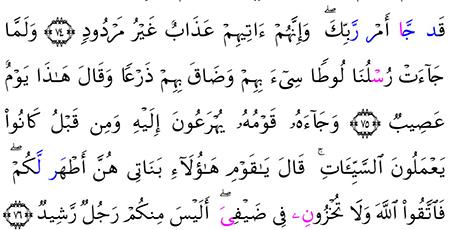 قَد جَّا أَمْر رَّبِّكَۖ وَإِنَّهُمْ ءَاتِيهِمْ عَذَابٌ غَيْرُ مَرْدُودٍ ﴿٧٤﴾ وَلَمَّا
جَآءَتْ رُسْلُنَا لُوطًا سِيٓءَ بِهِمْ وَضَاقَ بِهِمْ ذَرْعًا وَقَالَ هَٰذَا يَوْمٌ
عَصِيبٌ ﴿٧٥﴾ وَجَآءَهُۥ قَوْمُهُۥ يُهْرَعُونَ إِلَيْهِ وَمِن قَبْلُ كَانُوا۟
يَعْمَلُونَ ٱلسَّيِّـَٔاتِۚ قَالَ يَٰقَوْمِ هَٰٓؤُلَآءِ بَنَاتِى هُنَّ أَطْهَر لَّكُمْۖ
فَٱتَّقُوا۟ ٱللَّهَ وَلَا تُخْزُونِۦ فِى ضَيْفِىَۖ أَلَيْسَ مِنكُمْ رَجُلٌ رَّشِيدٌ ﴿٧٦﴾